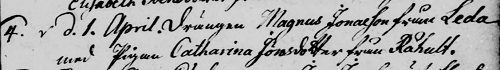 4. d. 1. April. Drängen Magnus Jonæson från Leda
med Pigan Catharina Jönsdotter från Råhult.